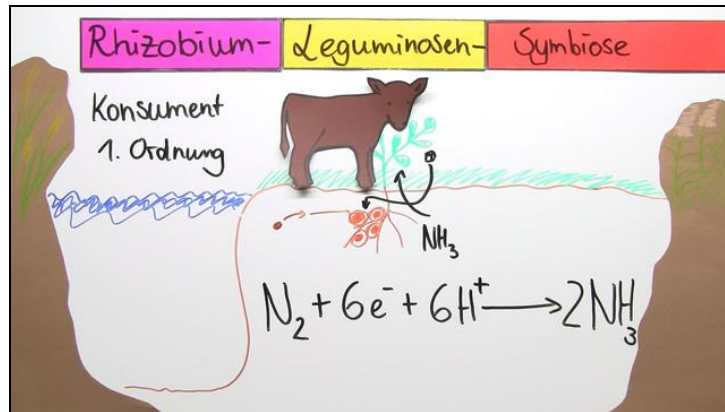 Rhizobium- Leguminosen- Symbiose
Konsument
1. Ordnung
NH₃
N₂ + 6e⁻ + 6H⁺ → 2NH₃